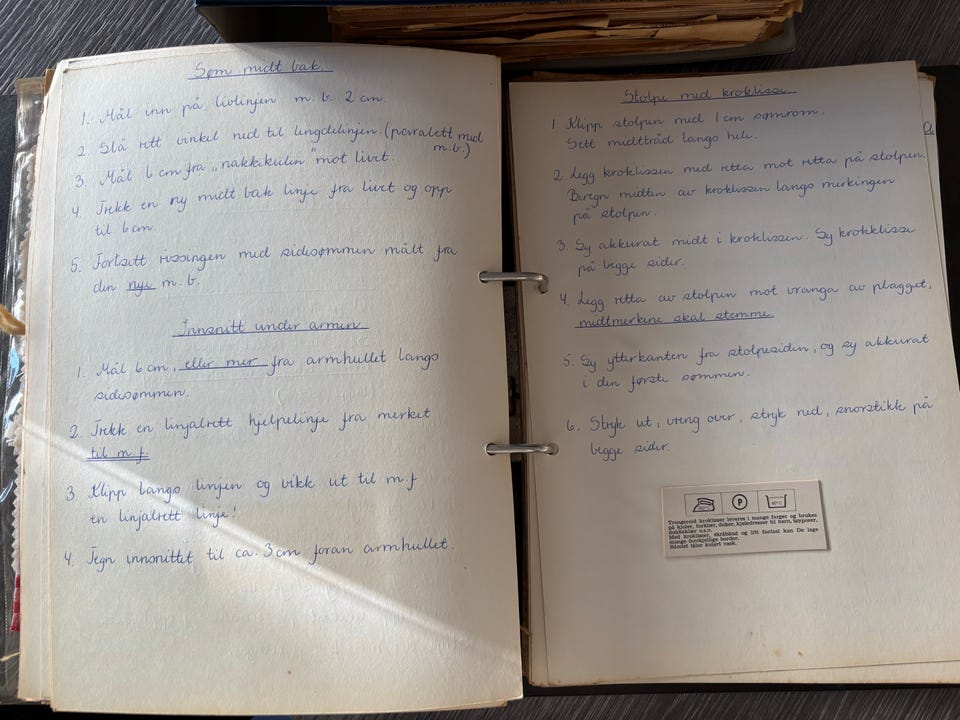 Søm midt bak.
1. Mål inn på livlinjen m.b. 2 cm.
2. Slå rett vinkel ned til lengdelinjen. (paralett med
m.b.)
3. Mål 6 cm fra „nakkekulen" mot livet.
4. Trekk en ny midt bak linje fra livet og opp
til 6 cm.
5. Fortsett rissingen med sidesømmen målt fra
den nye m.b.
Innsnitt under armen
1. Mål 6 cm, eller mer fra armhullet langs
sidesømmen.
2. Trekk en linjalrett hjelpelinje fra merket
til m.f.
3. Klipp langs linjen og vikk ut til m.f
en linjalrett linje!
4. Tegn innsnittet til ca. 3 cm foran armhullet.
Stolpe med kroklisse.
1 Klipp stolpen med 1 cm sømrom.
Sett midttråd langs hele.
2. Legg kroklissen med retta mot retta på stolpen.
Beregn midten av kroklissen langs merkingen
på stolpen.
3. Sy akkurat midt i kroklissen. Sy krokklisse
på begge sider.
4. Legg retta av stolpen mot vranga av plagget,
midtmerkene skal stemme.
5. Sy ytterkanten fra stolpesiden, og sy akkurat
i den første sømmen.
6. Stryk ut, vreng over, stryk ned, snorstikk på
begge sider.
P
Trangereid kroklisser leveres i mange farger og brukes
på kjoler, forklær, duker, kjeledresser til barn, høyposer,
dukkeklær o.s.v.
Med kroklisser, skråbånd og litt fantasi kan De lage
mange forskjellige border.
Båndet tåler kulørt vask.